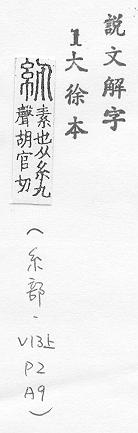 説文解字
1大徐本
紈
素也从糸丸
聲胡官切
(糸部.
V13上
P2
A9)